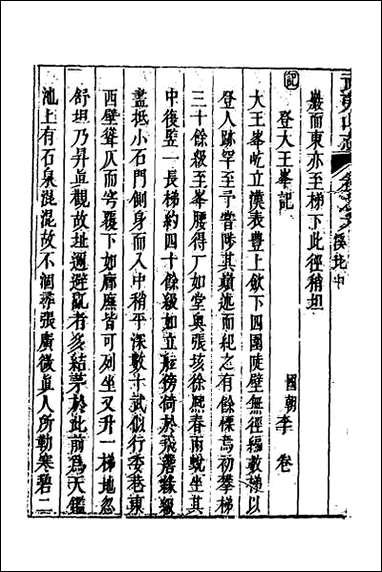 武夷山志 卷之九 溪北中
巖而東亦至梯下此徑稍坦
記
登大王峯記 國朝 李卷
大王峯屹立漢表豐上斂下四圍陡壁無徑縆數梯以
登人跡罕至予嘗陟其巔遞而紀之有餘慄焉初攀梯
三十餘級至峯腰得厂如堂奧張垓徐熙春兩蛻坐其
中後竪一長梯約四十餘級如立舩傍倚於飛巖緣級
盡抵小石門側身而入中稍平深數十武似行委巷東
西壁聳仄而穹覆下如廊廡皆可列坐又升一梯地忽
舒坦乃昇眞觀故址邇避亂者多結茅於此前爲天鑑
池上有石泉混混故不涸尋張廣微眞人所勒寒碧二